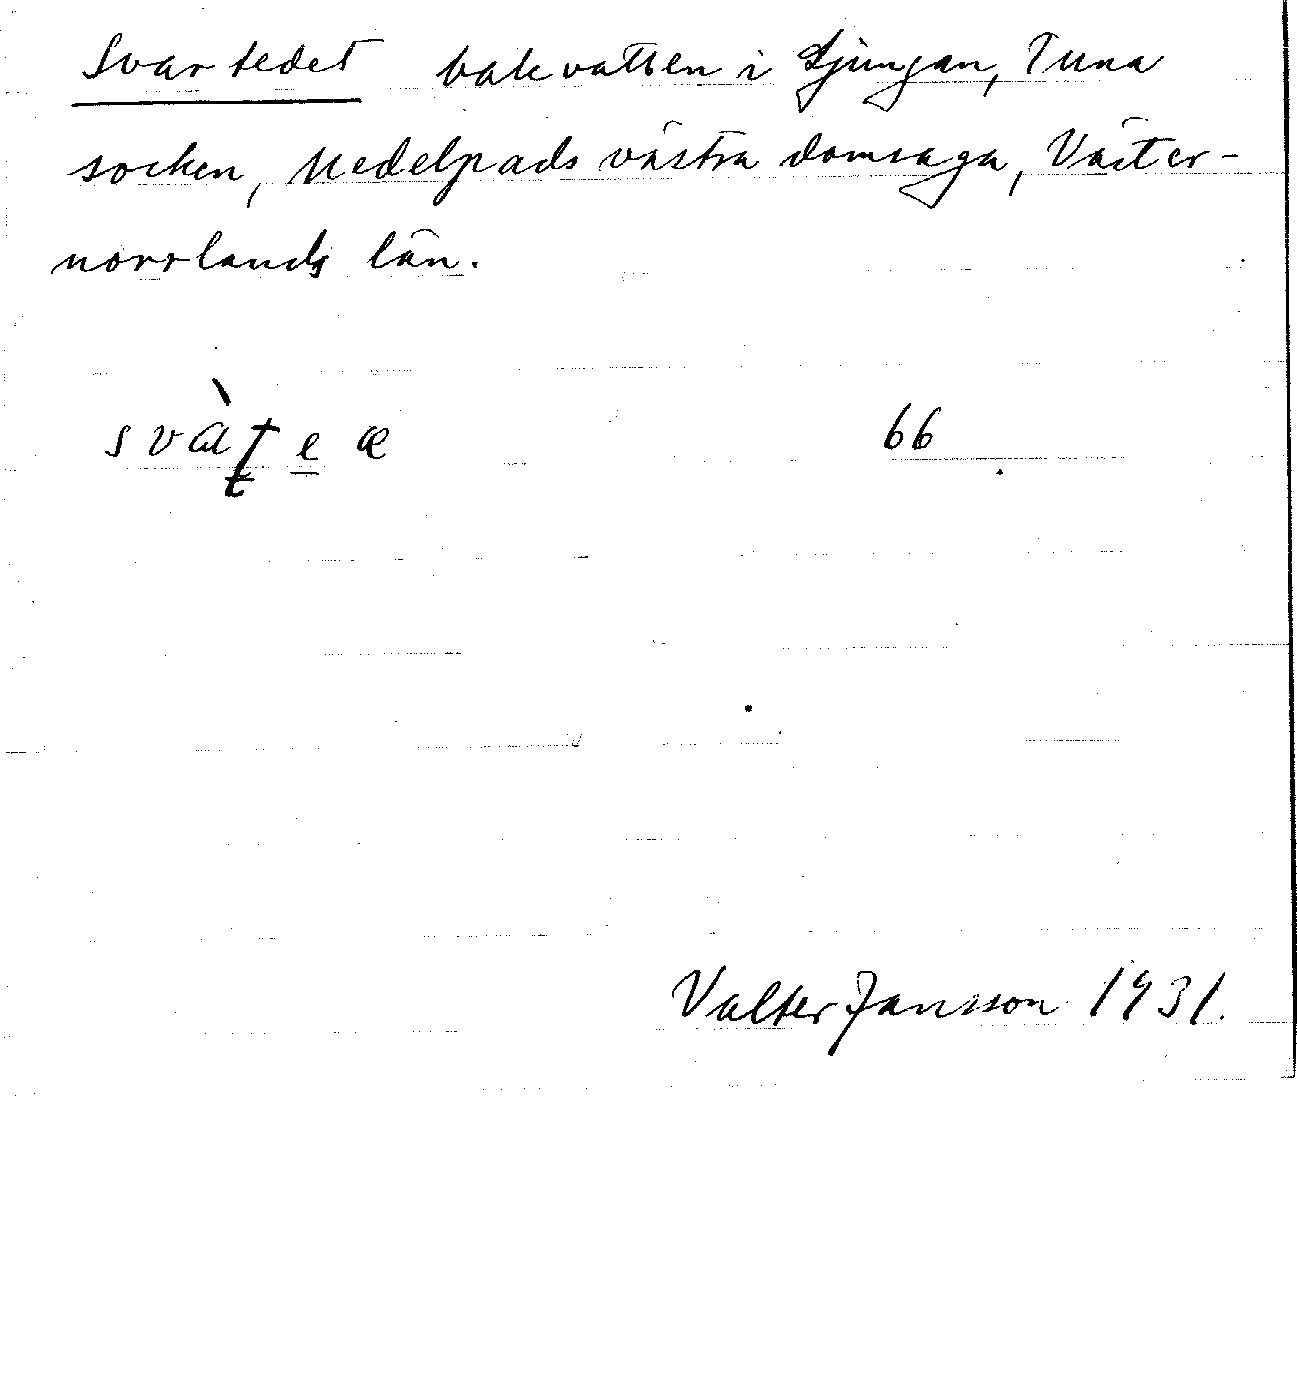 Svartedet bakvatten i Ljungan, Tuna
socken, Medelpads västra domsaga, Väster-
norrlands län.
svàʈe̲æ 66
Valter Jansson 1931.